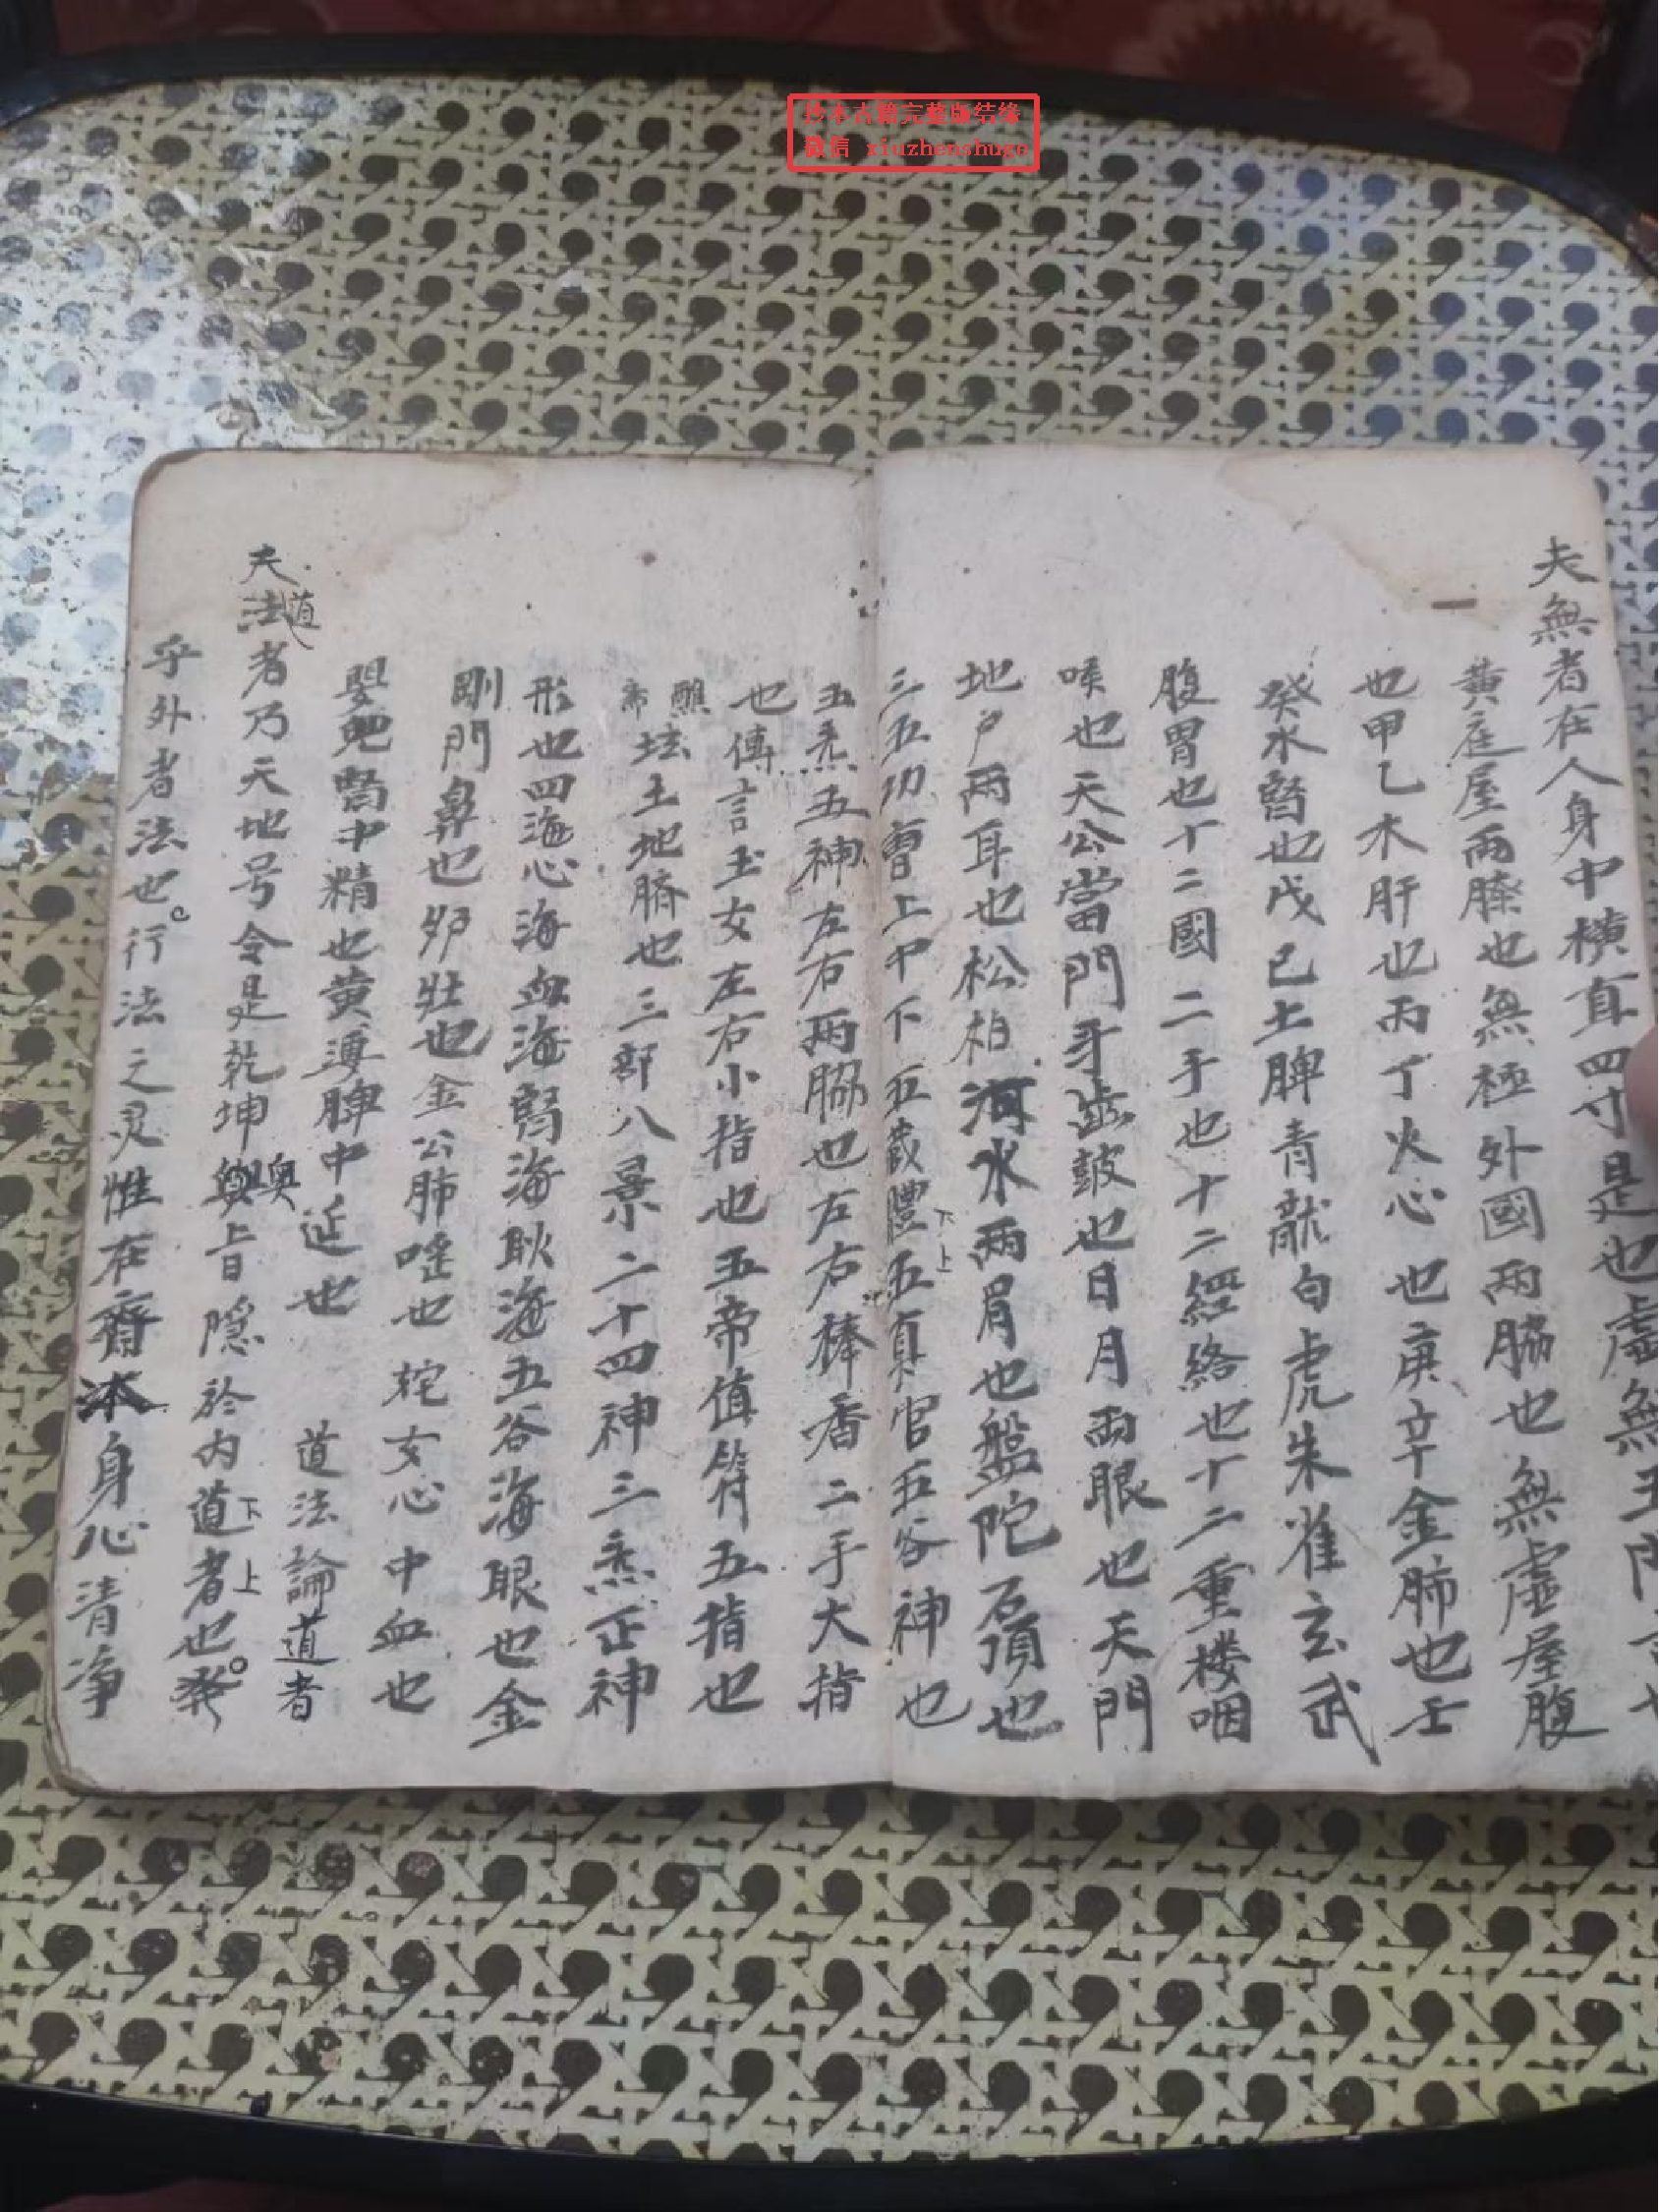 抄本古籍完整版结缘
微信 xiuzhenshuge
夫無者在人身中橫直四寸是也虛無玉門
黃庭屋兩膝也無無極外國兩脇也無虛屋腹
也甲乙木肝也丙丁火心也庚辛金肺也壬
癸水腎也戊己土脾青龍白虎朱雀玄武
腹胃也十二國二手也十二經絡也十二重楼咽
喉也天公當門牙齒鼓也日月兩眼也天門
地户兩耳也松柏河水兩眉也盤陀石頂也
三五功曹上中下五藏體五真官五谷神也
五炁五神左右兩脇也左右捧香二手大指
也傳言玉女左右小指也五帝值符五指也
醮坛土地臍也三部八景二十四神三炁正神
形也四海心海血海腎海耿海五谷海眼也金
剛門鼻也夘壯也金公肺唴也姹女心中血也
嬰兒腎中精也黃婆脾中延也 道法論道者
夫道法者乃天地号令是乾坤奧旨隱於内道者也發
乎外者法也行法之灵惟在齋本身心清净